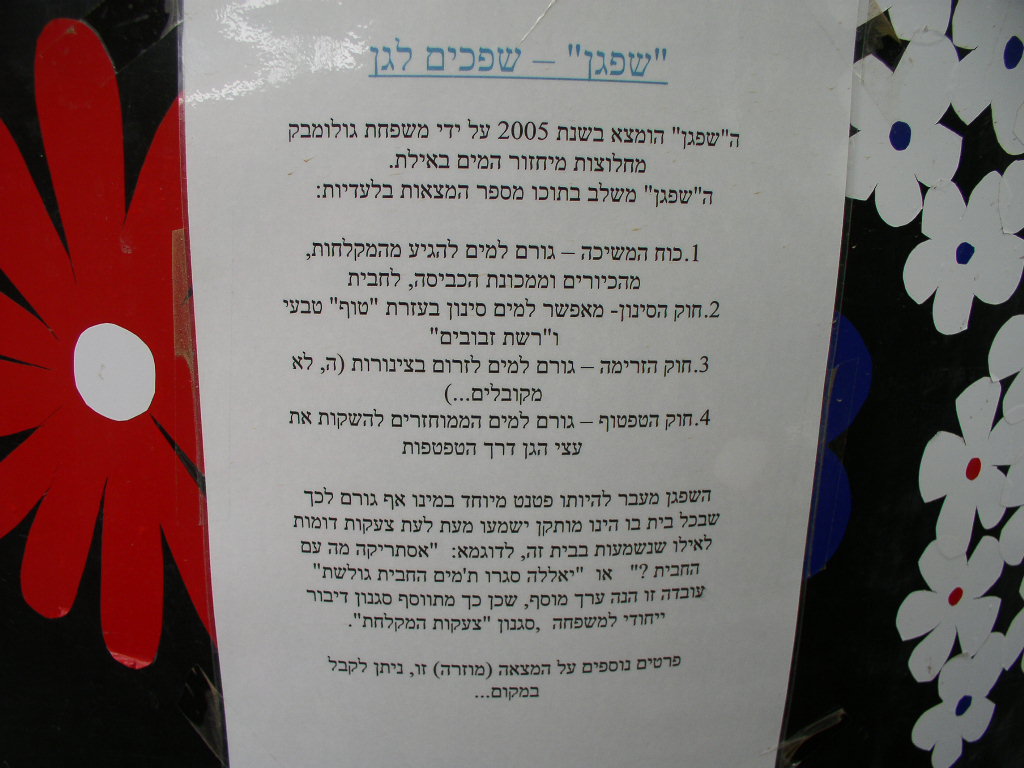 "שפגן" – שפכים לגן
ה"שפגן" הומצא בשנת 2005 על ידי משפחת גולומבק
מחלוצות מיחזור המים באילת.
ה"שפגן" משלב בתוכו מספר המצאות בלעדיות:
1.כוח המשיכה – גורם למים להגיע מהמקלחות,
מהכיורים וממכונת הכביסה, לחבית
2.חוק הסינון- מאפשר למים סינון בעזרת "טוף" טבעי
ו"רשת זבובים"
3.חוק הזרימה – גורם למים לזרום בצינורות (ה, לא
מקובלים...)
4.חוק הטפטוף – גורם למים הממוחזרים להשקות את
עצי הגן דרך הטפטפות
השפגן מעבר להיותו פטנט מיוחד במינו אף גורם לכך
שבכל בית בו הינו מותקן ישמעו מעת לעת צעקות דומות
לאילו שנשמעות בבית זה, לדוגמא: "אסתריקה מה עם
החבית ?" או "יאללה סגרו ת'מים החבית גולשת"
עובדה זו הנה ערך מוסף, שכן כך מתווסף סגנון דיבור
ייחודי למשפחה ,סגנון "צעקות המקלחת".
פרטים נוספים על המצאה (מוזרה) זו, ניתן לקבל
במקום...